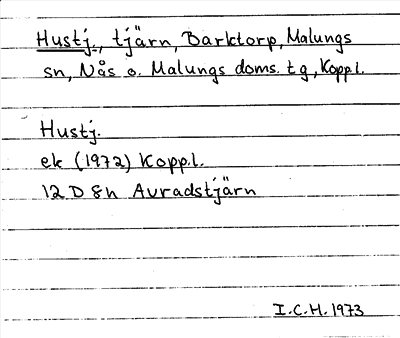 Hustj., tjärn, Barktorp, Malungs
sn, Nås o. Malungs doms. tg, Koppl.
Hustj.
ek (1972) Koppl.
12 D 8h Avradstjärn
I.C.H. 1973